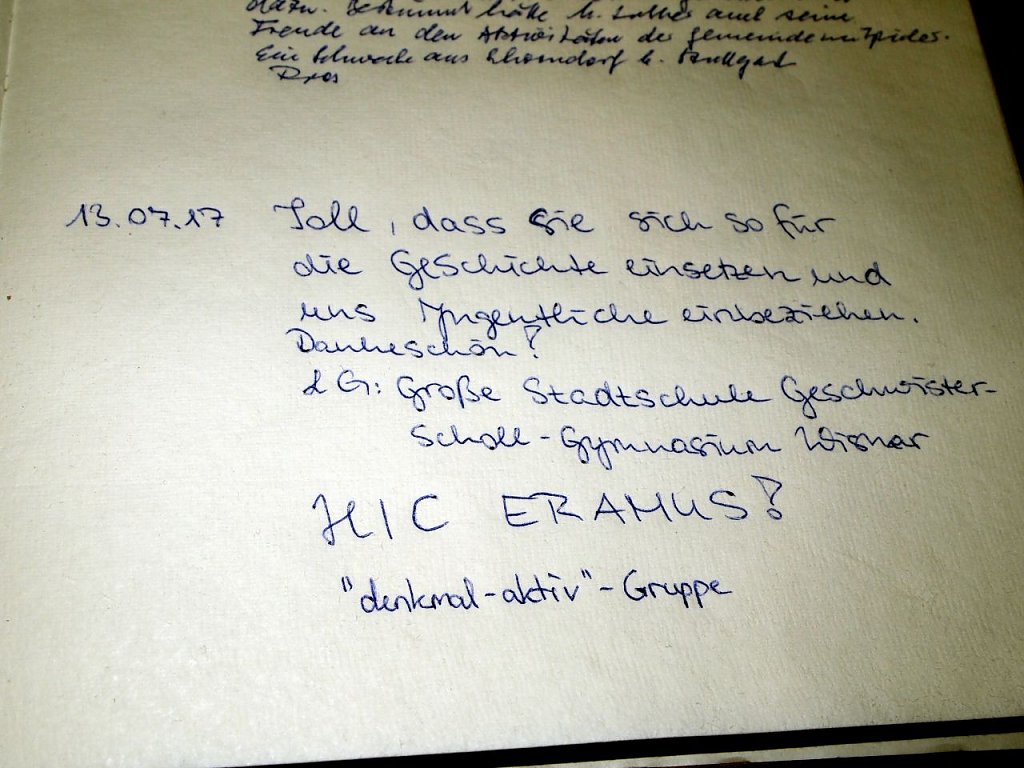 dazu. Bestimmt hätte M. Luther auch seine
Freude an den Aktivitäten der Gemeindemitglieder.
Ein Schwabe aus Schorndorf b. Stuttgart
13.07.17 Toll, dass Sie sich so für
die Geschichte einsetzen und
uns Jungentliche einbeziehen.
Dankeschön!
LG: Große Stadtschule Geschwister-
Scholl-Gymnasium Wismar
HIC ERAMUS!
"denkmal-aktiv"-Gruppe